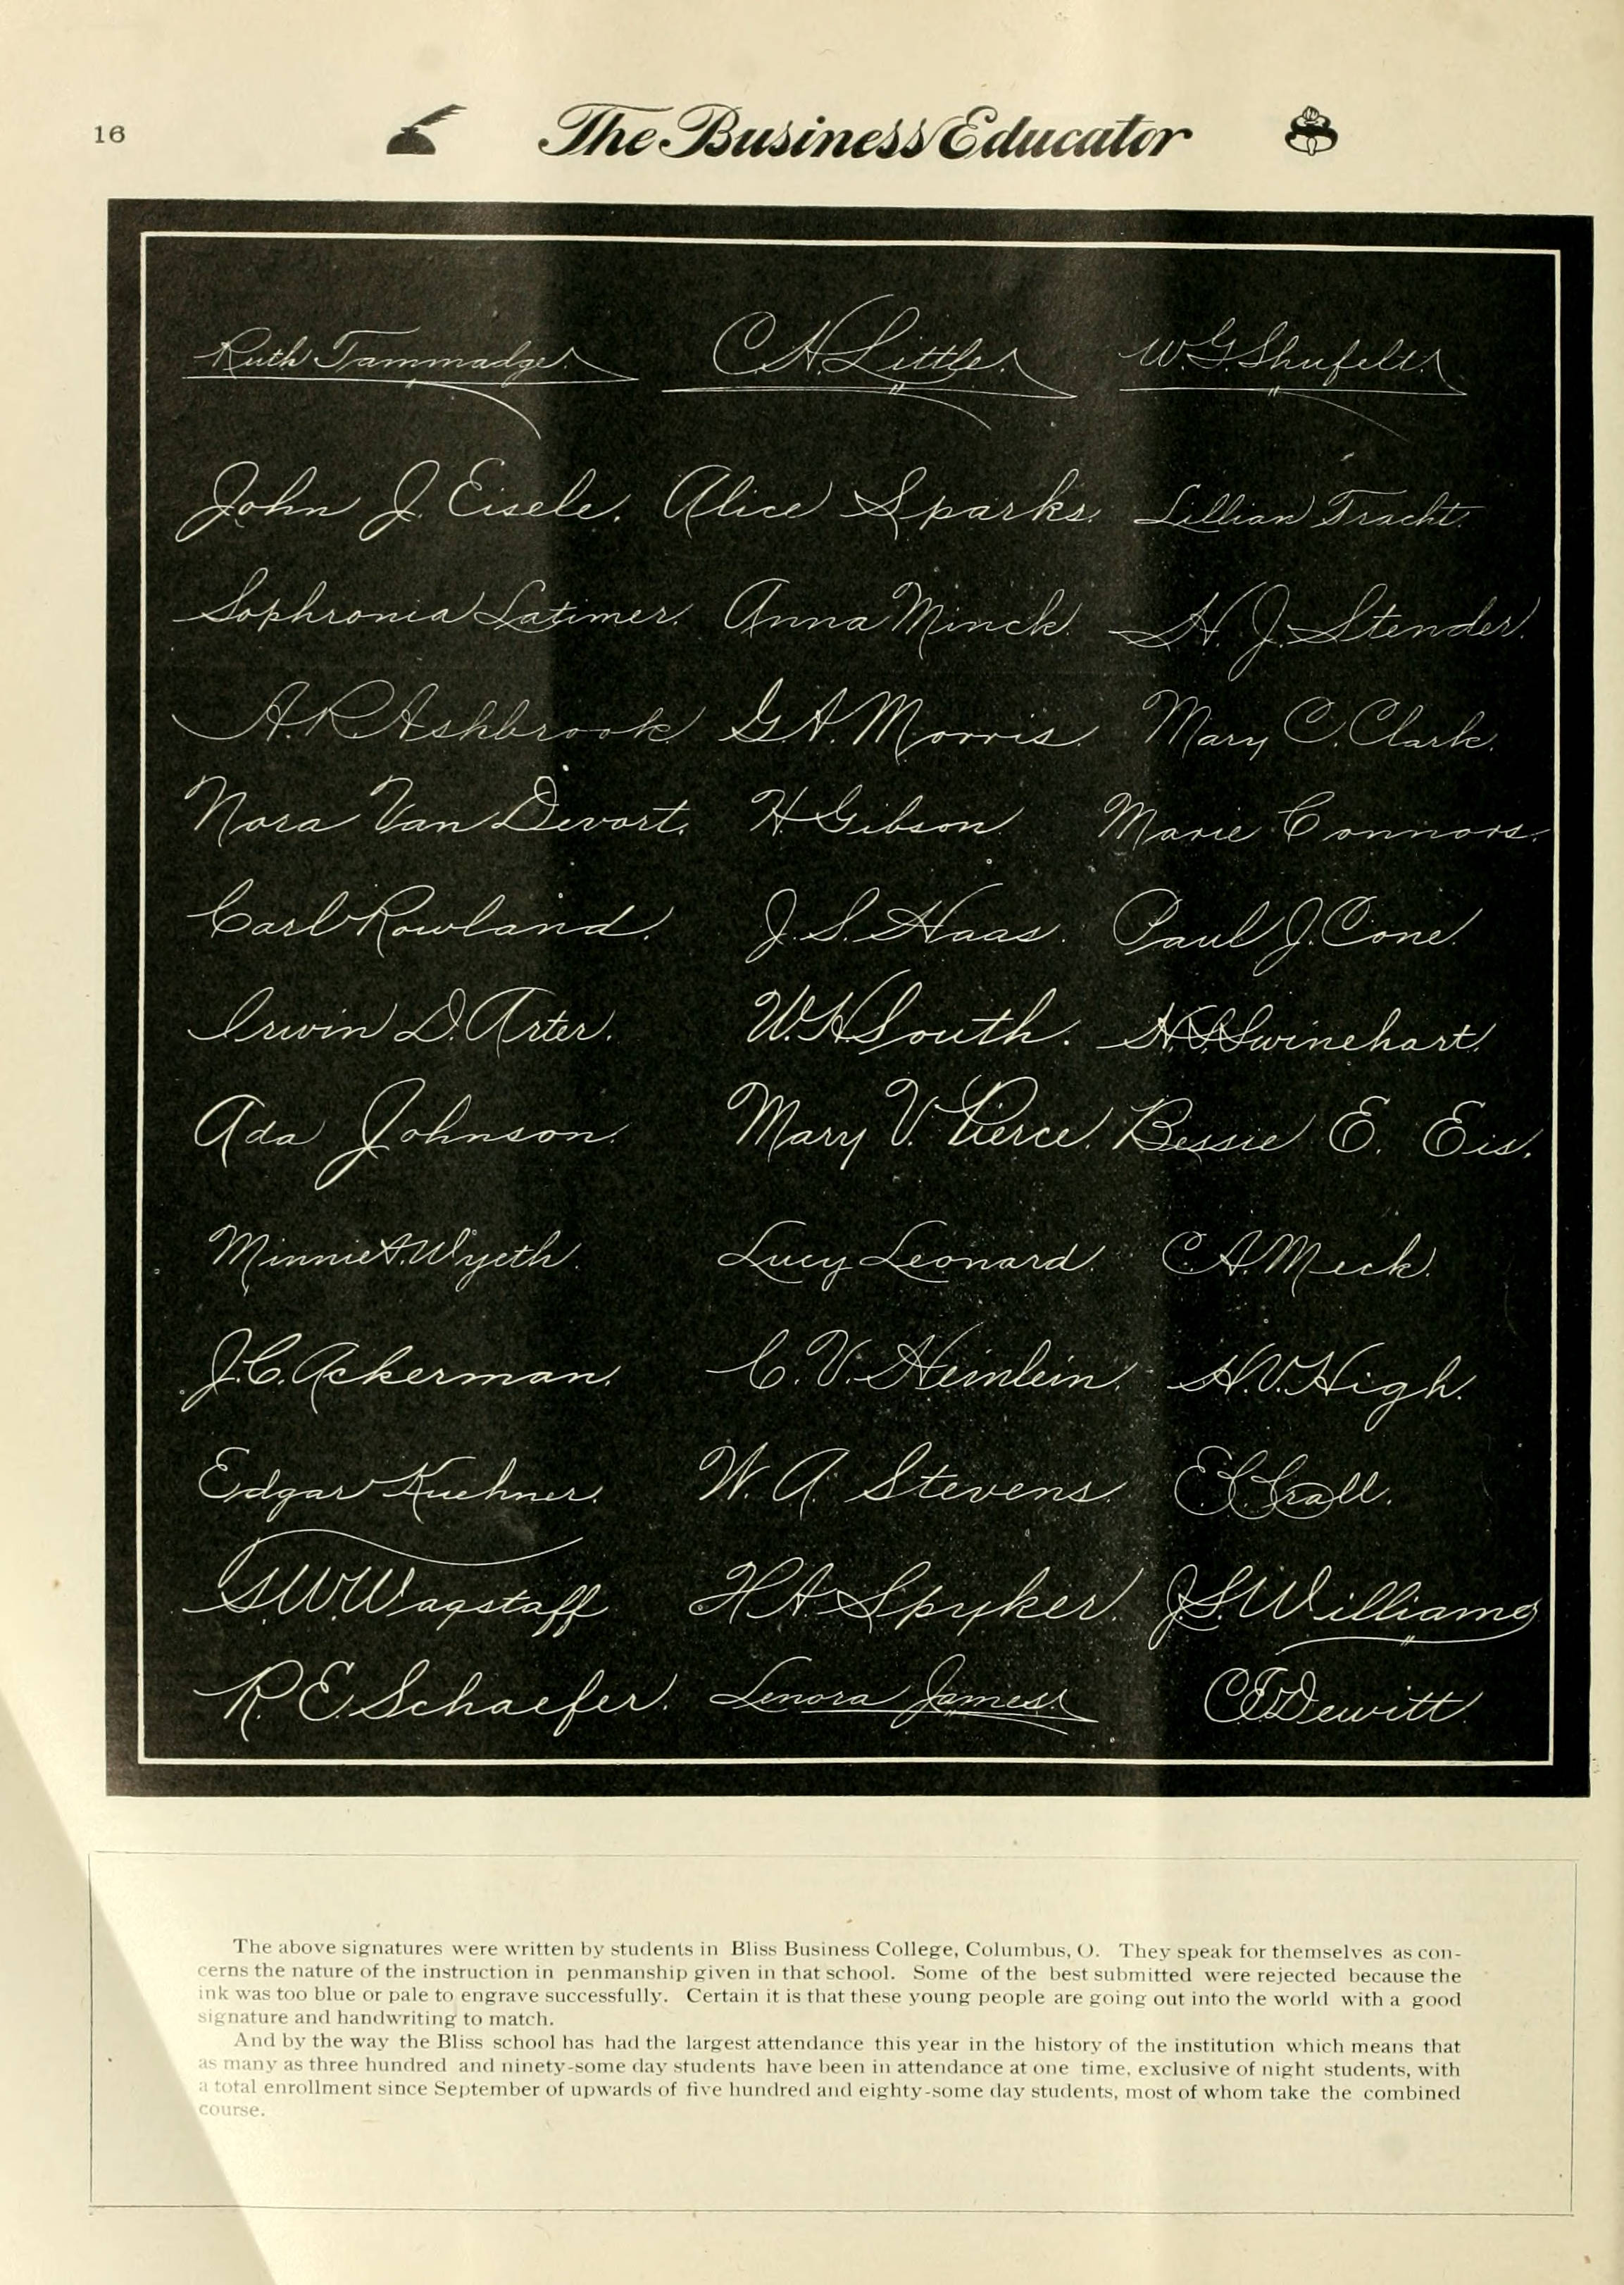 16 The Business Educator
Ruth Tammadge. C. H. Little. W. G. Shufelt.
John J. Eisele. Alice Sparks. Lillian Tracht.
Sophronia Latimer. Anna Minck. H. J. Stender.
A. R. Ashbrook. G. A. Morris. Mary C. Clark.
Nora Van Devort. H. Gibson. Marie Connors.
Carl Rowland. J. S. Haas. Paul J. Cone.
Irwin D. Arter. W. H. South. H. S. Swinehart.
Ada Johnson. Mary V. Pierce. Bessie E. Eis.
Minnie A. Wyeth. Lucy Leonard. C. A. Meck.
J. C. Ackerman. C. V. Heinlein. H. V. High.
Edgar Kuehner. W. A. Stevens.
S. W. Wagstaff H. A. Spyker. J. S. Williams
R. E. Schaefer. Lenora James. C. E. Dewitt.
The above signatures were written by students in Bliss Business College, Columbus, O. They speak for themselves as con-
cerns the nature of the instruction in penmanship given in that school. Some of the best submitted were rejected because the
ink was too blue or pale to engrave successfully. Certain it is that these young people are going out into the world with a good
signature and handwriting to match.
And by the way the Bliss school has had the largest attendance this year in the history of the institution which means that
as many as three hundred and ninety-some day students have been in attendance at one time, exclusive of night students, with
a total enrollment since September of upwards of five hundred and eighty-some day students, most of whom take the combined
course.